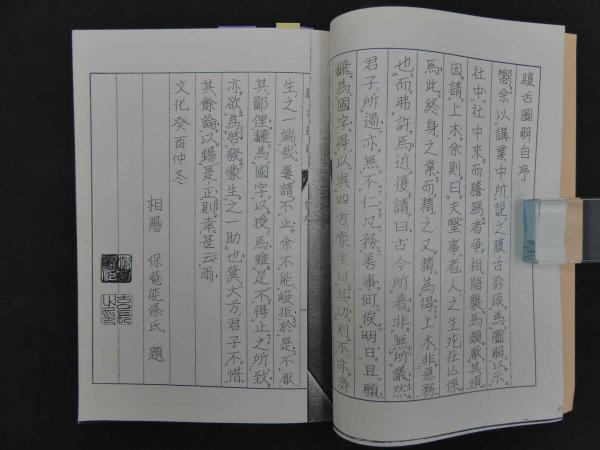 腹舌圖解自序
嚮余以講業中所説之腹舌診候為圖解以示
社中社中來而謄寫者爭相踏襲焉頗厭其煩
因請上木余則曰夫醫事者人之生死在係
焉此終身之業而精之又精為得上木非急務
也而弗許焉近復請曰古今所著非無所議然
君子所過亦無不仁凡務善事何俟明日且願
飜為國字得以與四方蒙生則其功則不亦濟
生之一端哉屢請不止余不能峻拒於是不厭
其鄙俚飜為國字以授焉雖是不得止之所致
亦欲為啓發蒙生之一助也冀大方君子不惜
其餘論以錫是正則幸甚云爾
文化癸酉仲冬
相陽 保菴能條氏 題